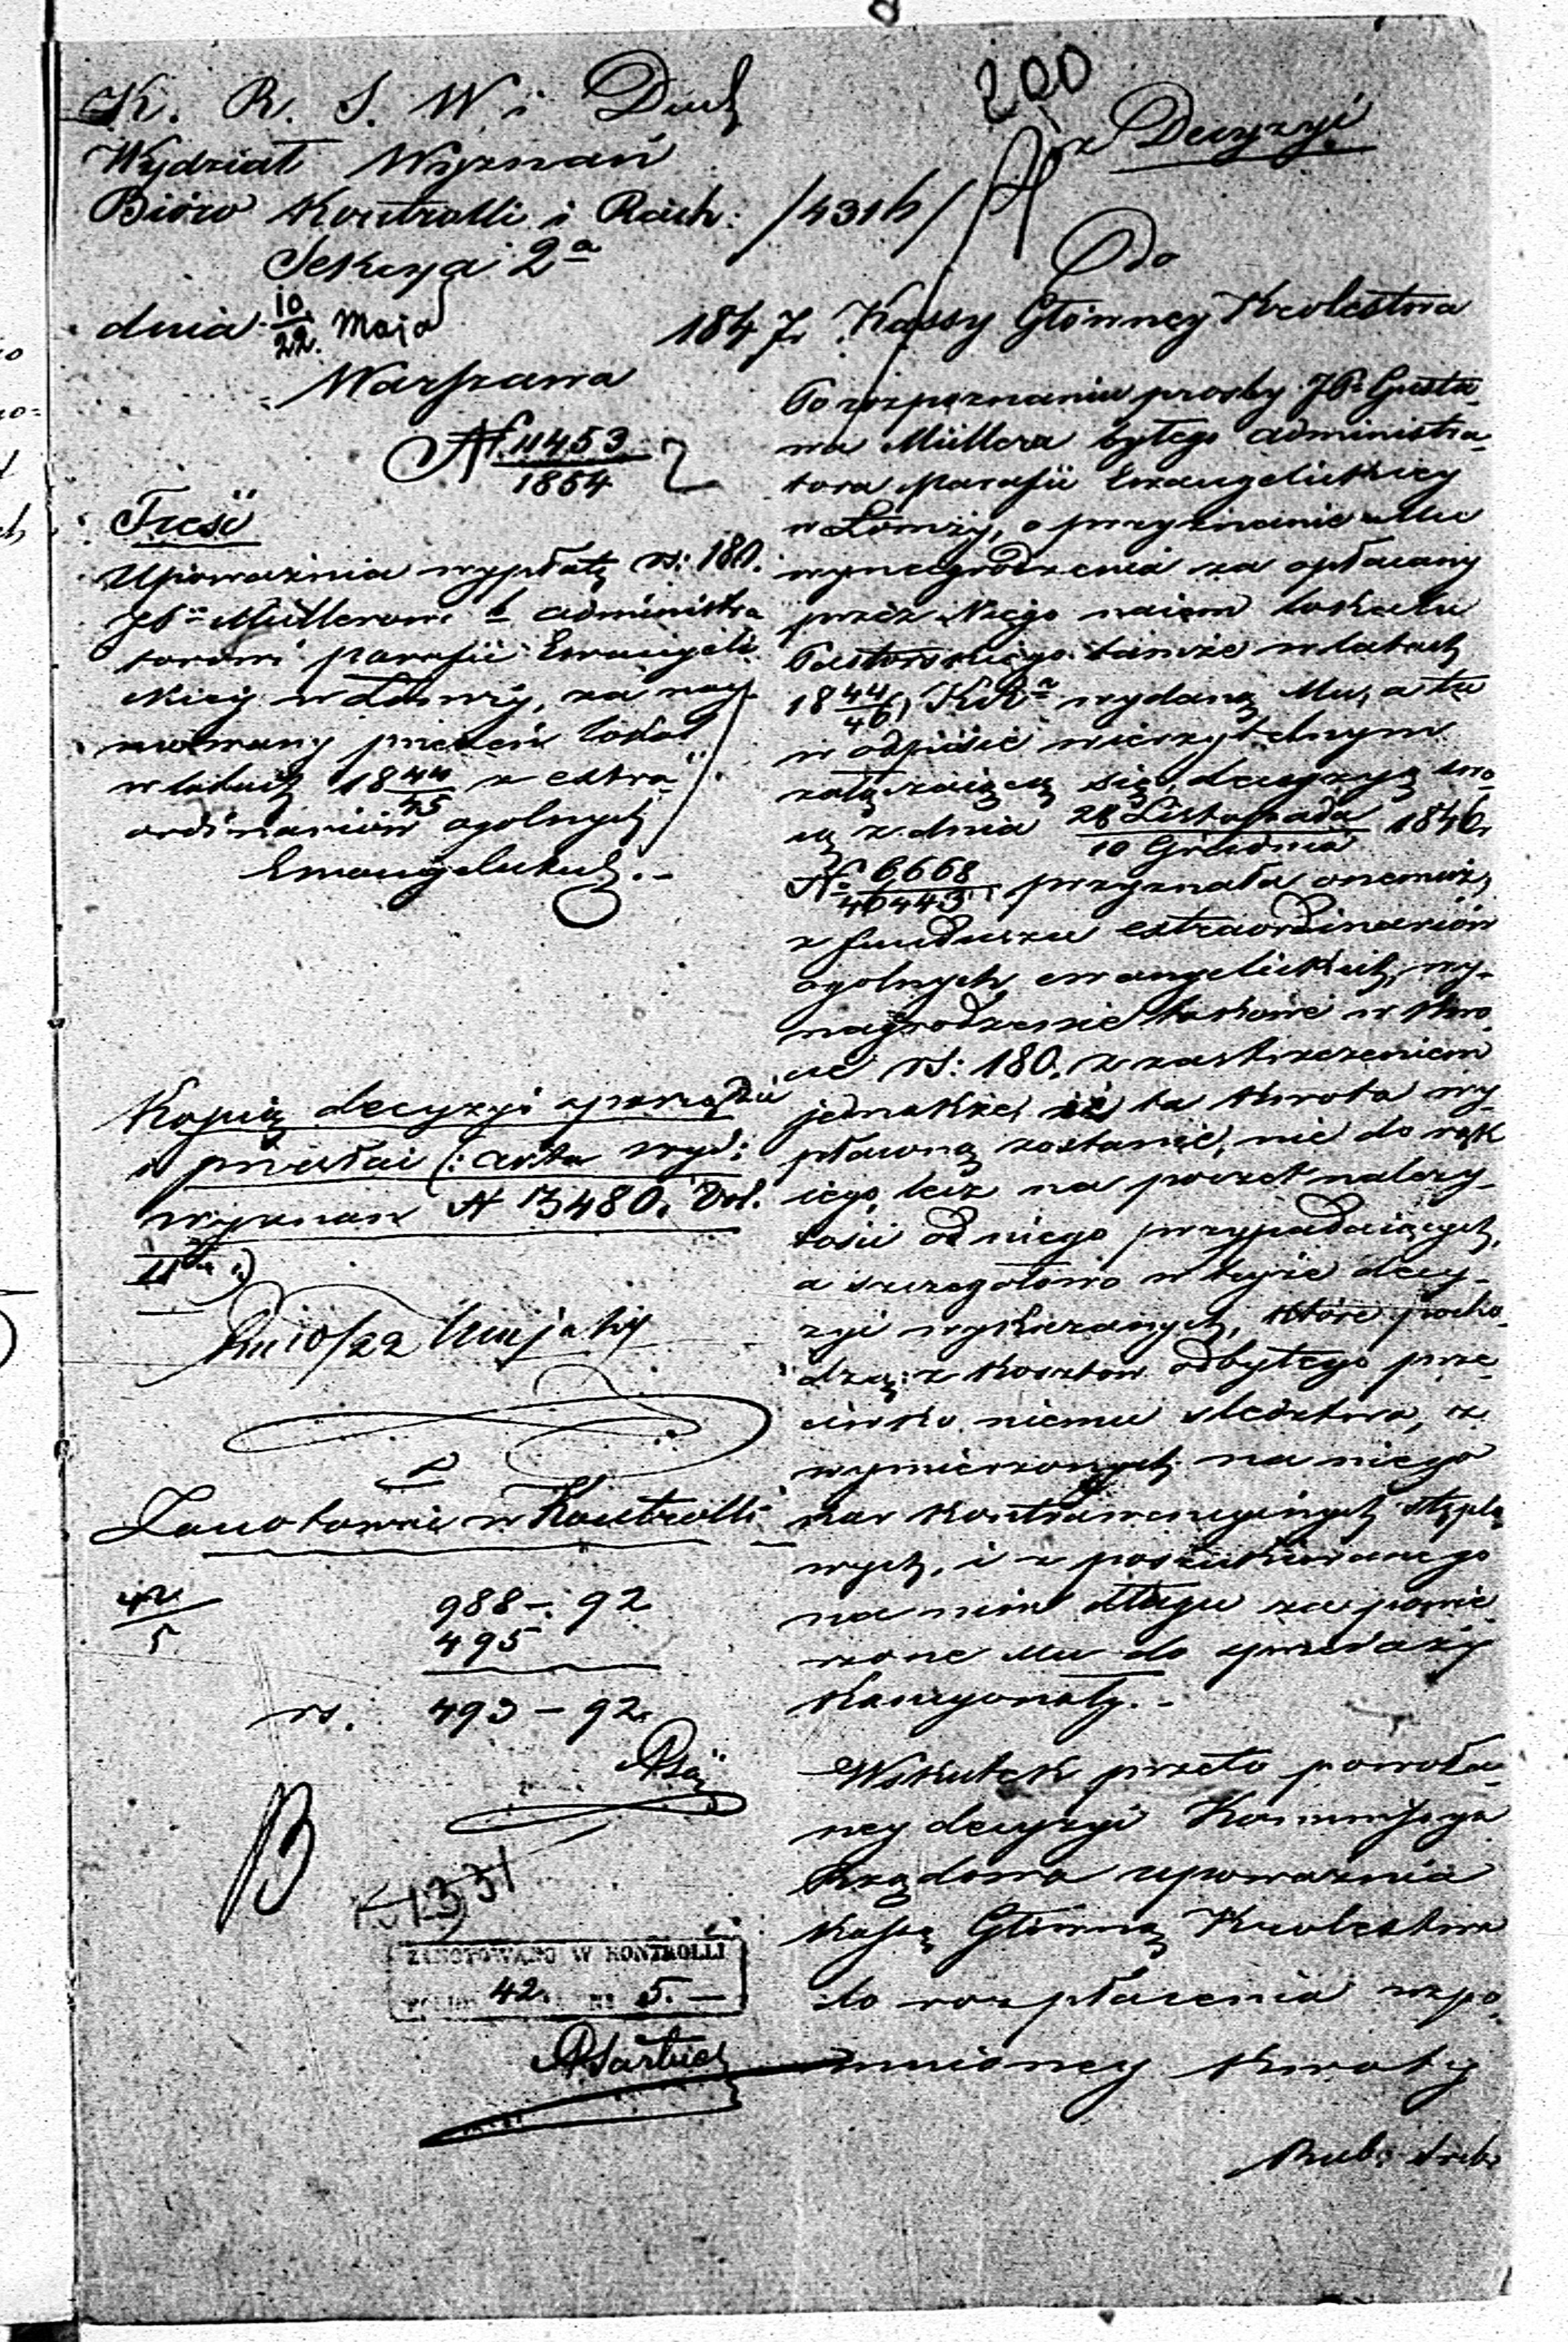 200
K. R. S. W. i Duch
Wydział Wyznań
Bióro Kontrolli i Rach: /431b/
Sekcya 2a
dnia 10/22. Maja 1847 r.
Warszawa
N 11453/1854
Treść
Upoważnia wypłatę rs: 180.
JXu Müllerowi b administra
torowi parafii Ewangeli
ckiey w Łomży, za nay
mowany przezeń lokal
w latach 18 44/45 z extra
ordinariów ogolnych
Ewangelickich.-
Kopią decyzyi sporządzić
i przesłać (: akta wyd:
wyznań N 13480. Vol.
II
10/22 Maja
Zanotowane w Kontrolli
42/5
988 -. 92
495
rs. 493 - 92.
B
K 1331
ZANOTOWANO W KONTROLLI
42. N 5. -
z Decyzyi
Do
Kassy Głównej Krolestwa
Po rozpoznaniu prosby JX Gusta
wa Müllera byłego administra
tora Parafii Ewangelickiey
w Łomży, o przyznanie Mu
wynagrodzenia za opłacany
przez Niego naiem lokalu
Pastorskiego tamże w latach
18 44/46, KRa wydaną Mu, a tu
w odpisie wierzytelnym
załączaiącą się, decyzyą swo
ią z dnia 28 Listopada/10 Grudnia 1846 r.
N 6668/46443 przyznała onemuż,
z funduszu extraordinariów
ogolnych ewangelickich, wy-
nagrodzenie taksowe w kwo
cie rs: 180. z zastrzeżeniem
jednakże, iż ta kwota wy
płaconą zostanie, nie do rąk
iego, lecz na poczet należy-
tości od niego przypadaiących,
a szczegołowo w teyże decy-
zyi wykazanych, które pocho
dzą: z kosztów odbytego prze
ciwko niemu sledztwa, z
wymierzonych na niego
kar kontrawencyinych stęplo
wych, i z poszukiwanego
na nim długu za powie
rzone Mu do sprzedaży
Kancyonały.-
Wskutek przeto powoła-
ney decyzyi Kommissya
Rządowa upoważnia
Kassę Główną Krolestwa
do rozpłacenia wspo
mnioney kwoty
Rub: sreb: